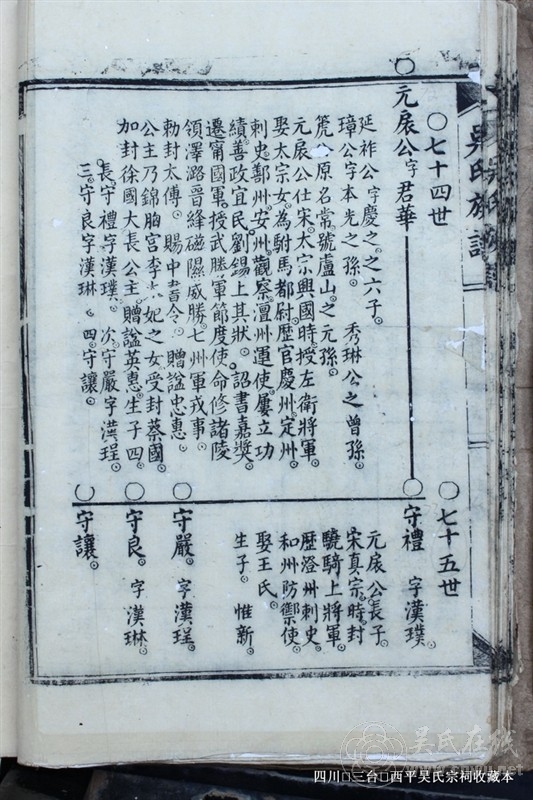 吳氏族譜
〇七十四世
〇元扆公字君華
延祚公字慶之。之六子。秀琳公之曾孫。
璋公字本光之孫。
篪公原名常。號盧山。之元孫。
元扆公仕宋。太宗興國時。授左衛將軍。
娶太宗女。為駙馬都尉。歷官慶州。定州
刺史。鄭州。安州。觀察。澶州運使。屢立功
績。善政宜民。劉錫上其狀。詔書嘉獎。
遷甯國軍。授武勝軍節度使。命修諸陵
領澤潞晉絳磁隰威勝。七州軍戎事。
勅封太傅。賜中書令。贈諡忠惠。
公主乃錦胸宮李妃之女受封蔡國
加封徐國大長公主。贈諡英惠。生子四。
長。守禮字漢璞。次。守嚴字漢珵。
三。守良字漢琳。四。守讓。
〇七十五世
〇守禮 字漢璞。
元扆公長子。
宋真宗時封
驍騎上將軍。
歷澄州刺史。
和州防禦使
娶王氏。
生子。惟新。
〇守嚴。字漢珵。
〇守良。字漢琳。
〇守讓。
吴氏在线
四川□三台□西平吴氏宗祠收藏本